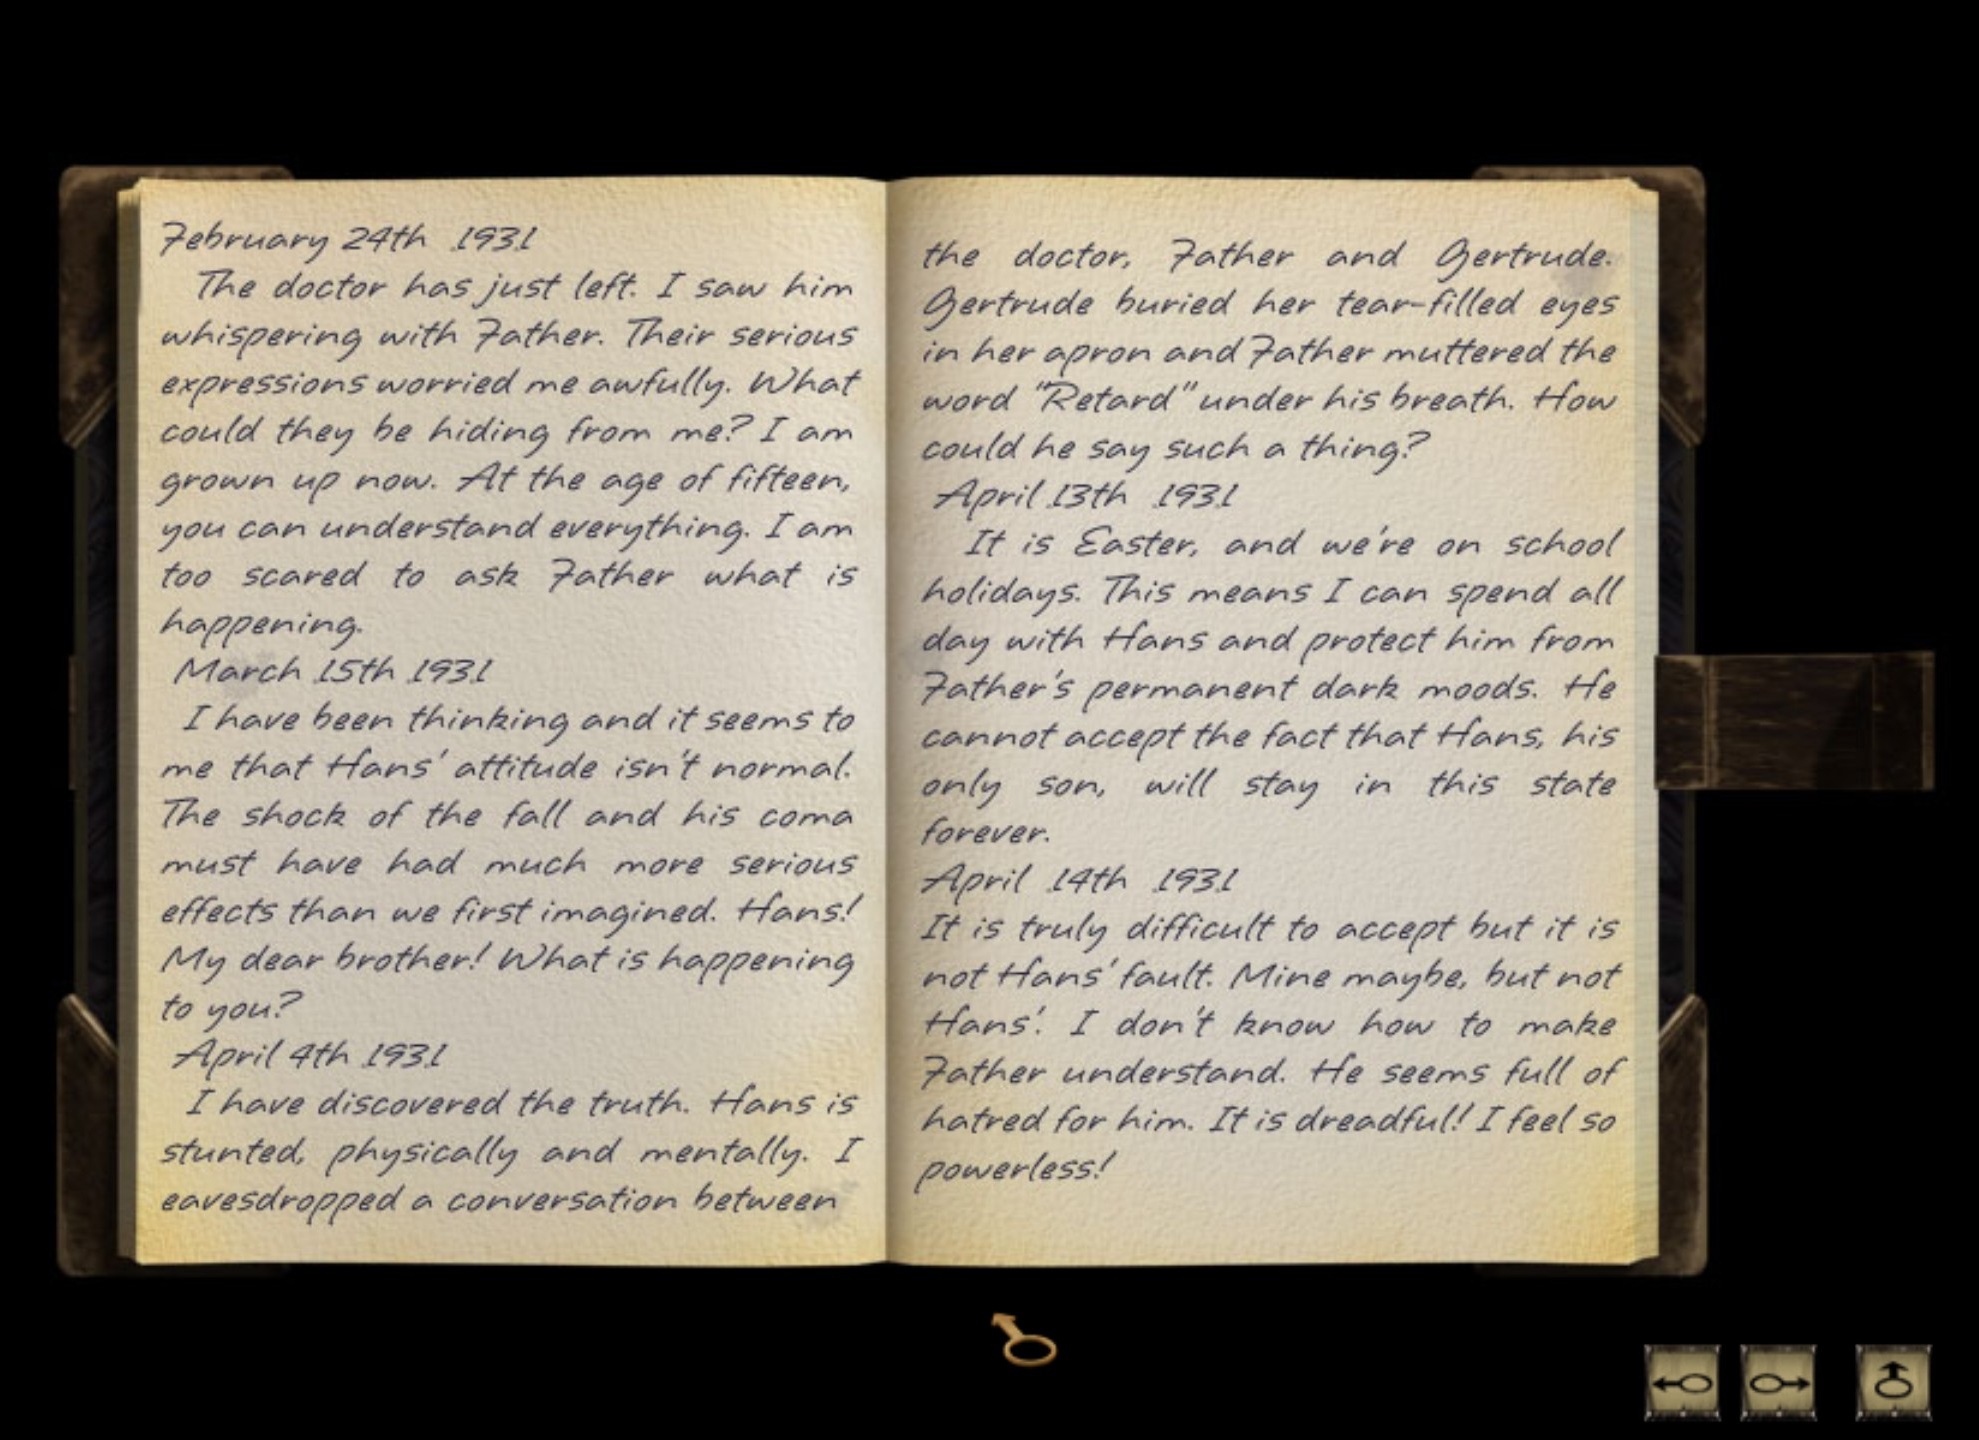 February 24th 1931
The doctor has just left. I saw him
whispering with Father. Their serious
expressions worried me awfully. What
could they be hiding from me? I am
grown up now. At the age of fifteen,
you can understand everything. I am
too scared to ask Father what is
happening.
March 15th 1931
I have been thinking and it seems to
me that Hans' attitude isn't normal.
The shock of the fall and his coma
must have had much more serious
effects than we first imagined. Hans!
My dear brother! What is happening
to you?
April 4th 1931
I have discovered the truth. Hans is
stunted, physically and mentally. I
eavesdropped a conversation between
the doctor, Father and Gertrude.
Gertrude buried her tear-filled eyes
in her apron and Father muttered the
word "Retard" under his breath. How
could he say such a thing?
April 13th 1931
It is Easter, and we're on school
holidays. This means I can spend all
day with Hans and protect him from
Father's permanent dark moods. He
cannot accept the fact that Hans, his
only son, will stay in this state
forever.
April 14th 1931
It is truly difficult to accept but it is
not Hans' fault. Mine maybe, but not
Hans'. I don't know how to make
Father understand. He seems full of
hatred for him. It is dreadful! I feel so
powerless!